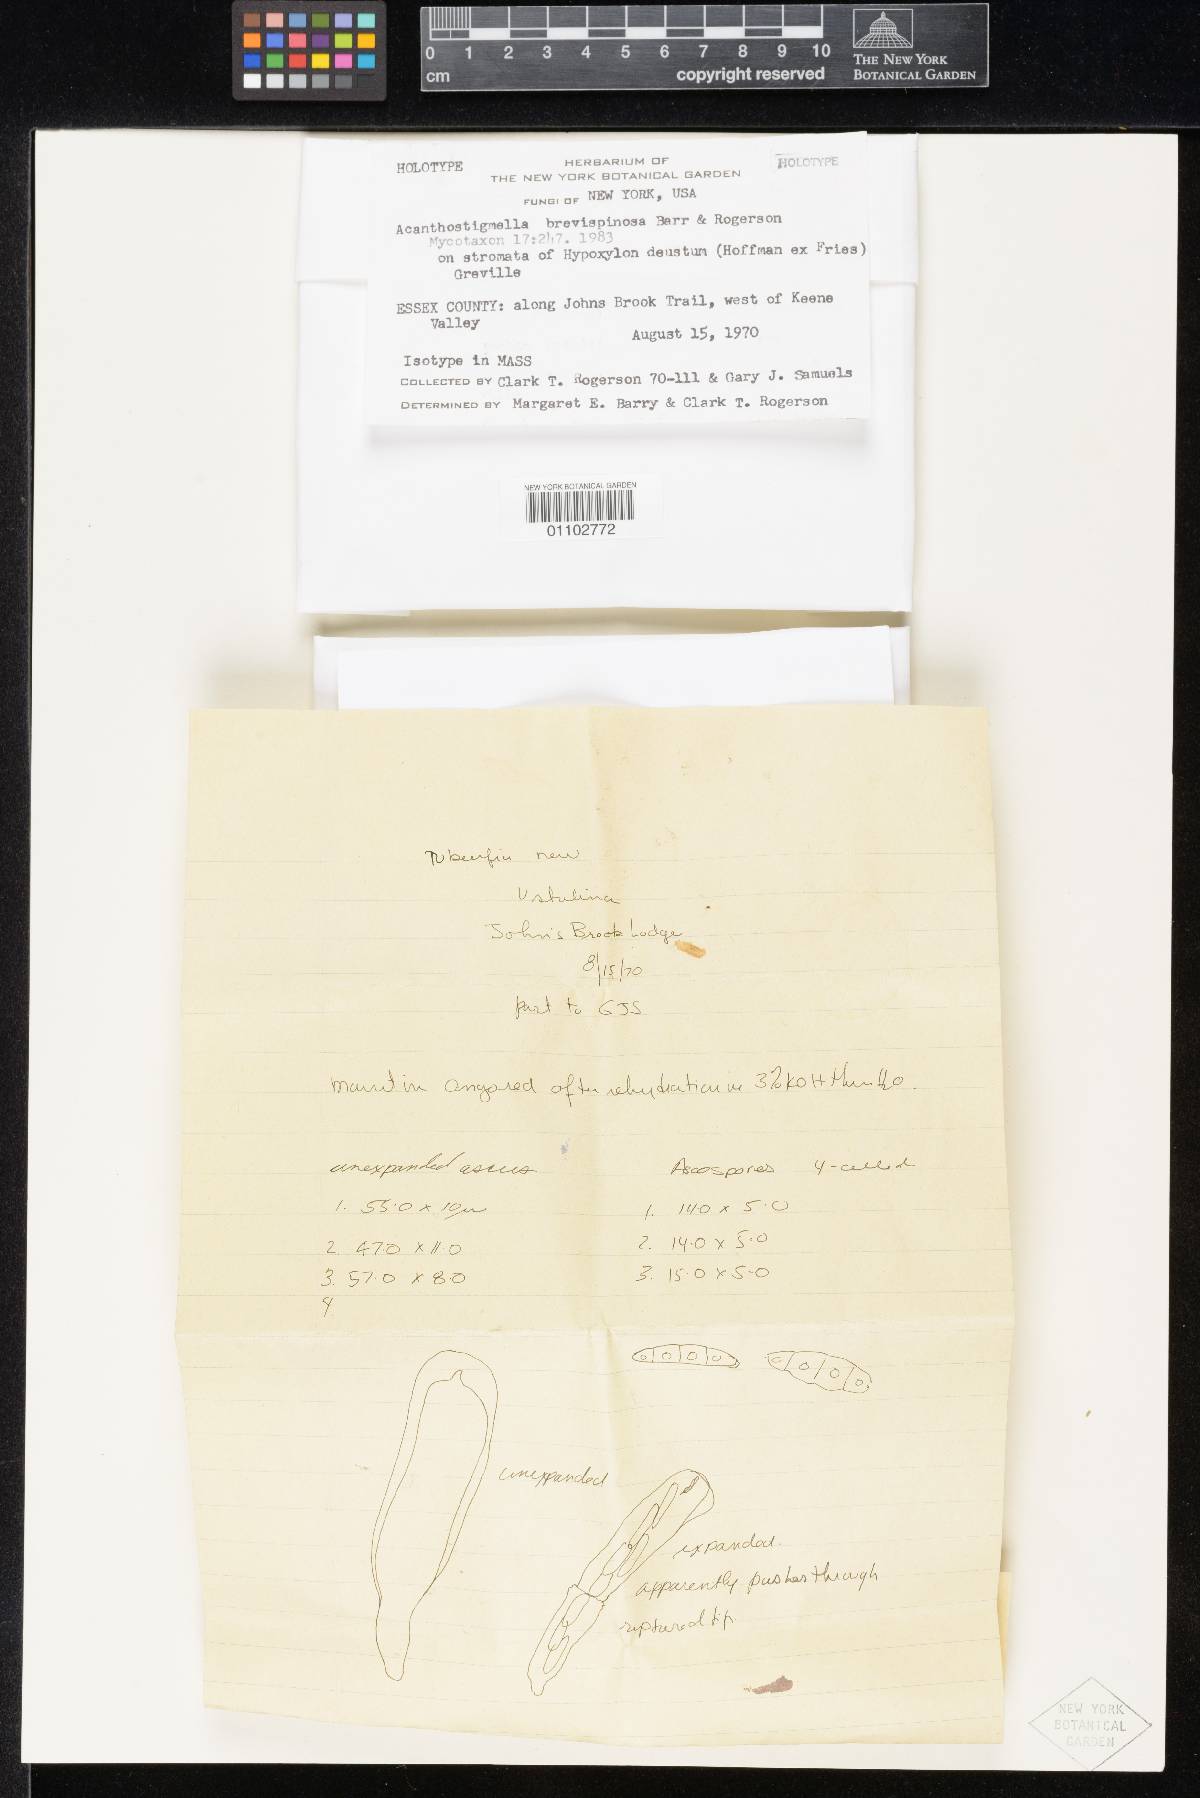 0 1 2 3 4 5 6 7 8 9 10
cm
copyright reserved
THE NEW YORK
BOTANICAL GARDEN
HOLOTYPE
HERBARIUM OF
HOLOTYPE
THE NEW YORK BOTANICAL GARDEN
FUNGI OF NEW YORK, USA
Acanthostigmella brevispinosa Barr & Rogerson
Mycotaxon 17:247. 1983
on stromata of Hypoxylon deustum (Hoffman ex Fries)
Greville
ESSEX COUNTY: along Johns Brook Trail, west of Keene
Valley
August 15, 1970
Isotype in MASS
COLLECTED BY Clark T. Rogerson 70-111 & Gary J. Samuels
DETERMINED BY Margaret E. Barry & Clark T. Rogerson
NEW YORK BOTANICAL GARDEN
01102772
new
Ustulina
John's Brook Lodge
8/15/70
part to GJS
after rehydration in 3% KOH then H2O.
unexpanded ascus
Ascospores 4-celled
1. 55.0 x 10µ
1. 14.0 x 5.0
2. 47.0 x 11.0
2. 14.0 x 5.0
3. 57.0 x 8.0
3. 15.0 x 5.0
4
unexpanded
expanded.
apparently pushes through
ruptured tip.
NEW YORK
BOTANICAL
GARDEN